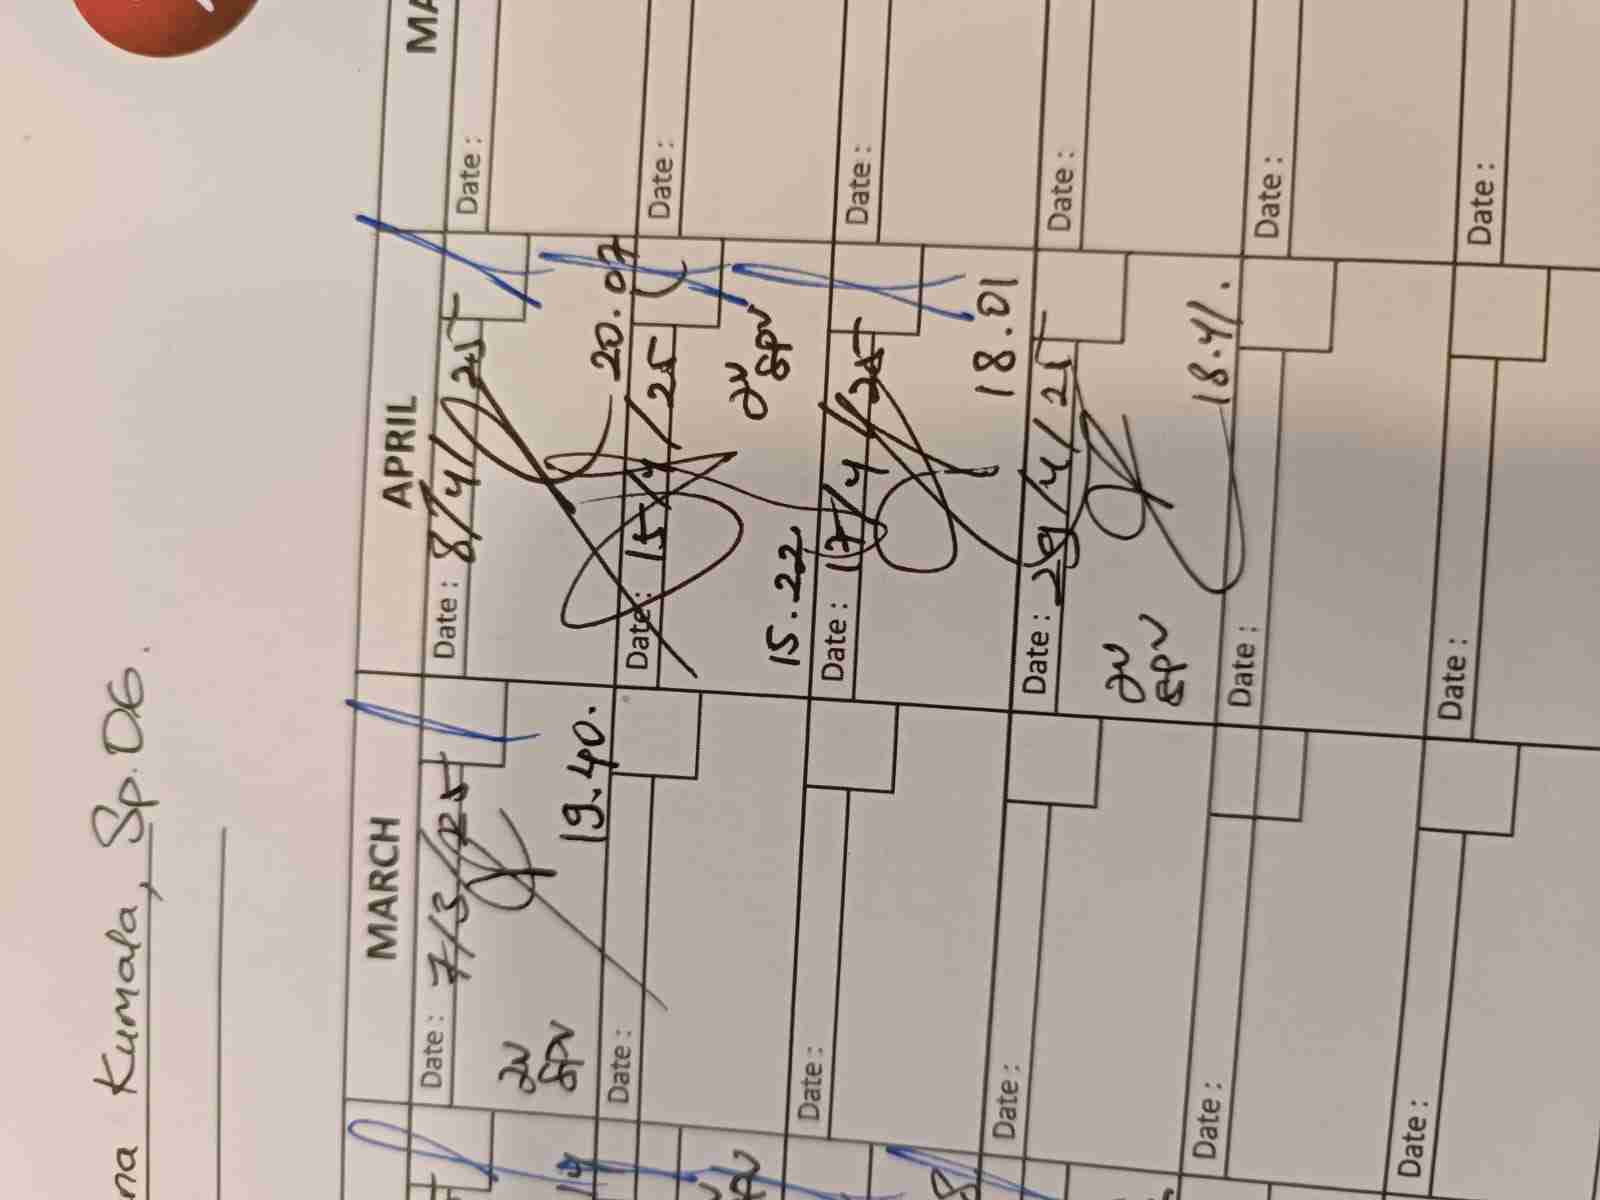 na Kumala, Sp.OG.
MARCH
APRIL
MA
Date : 7/3/25
19.40.
Date : 8/4/25
20.07
Date :
Date :
Date : 15/4/25
15.22
Date :
Date :
Date : 17/4/25
18.01
Date :
Date :
Date : 29/4/25
18.41.
Date :
Date :
Date :
Date :
Date :
Date :
Date :